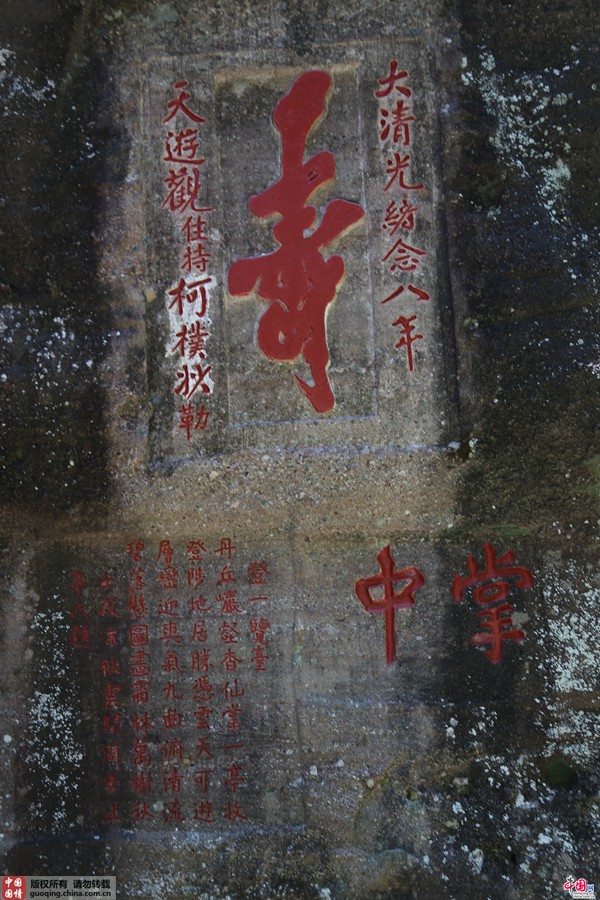 大清光緒念八年
壽
天遊觀住持柯樸勒
掌中
登一覽臺
丹丘巘壑杳仙掌一亭收
登陟地居勝憑雲天可遊
層巒迎爽氣九曲俯清流
碧落懸圖畫霜林萬樹秋
中国国情
版权所有 请勿转载
guoqing.china.com.cn
中国